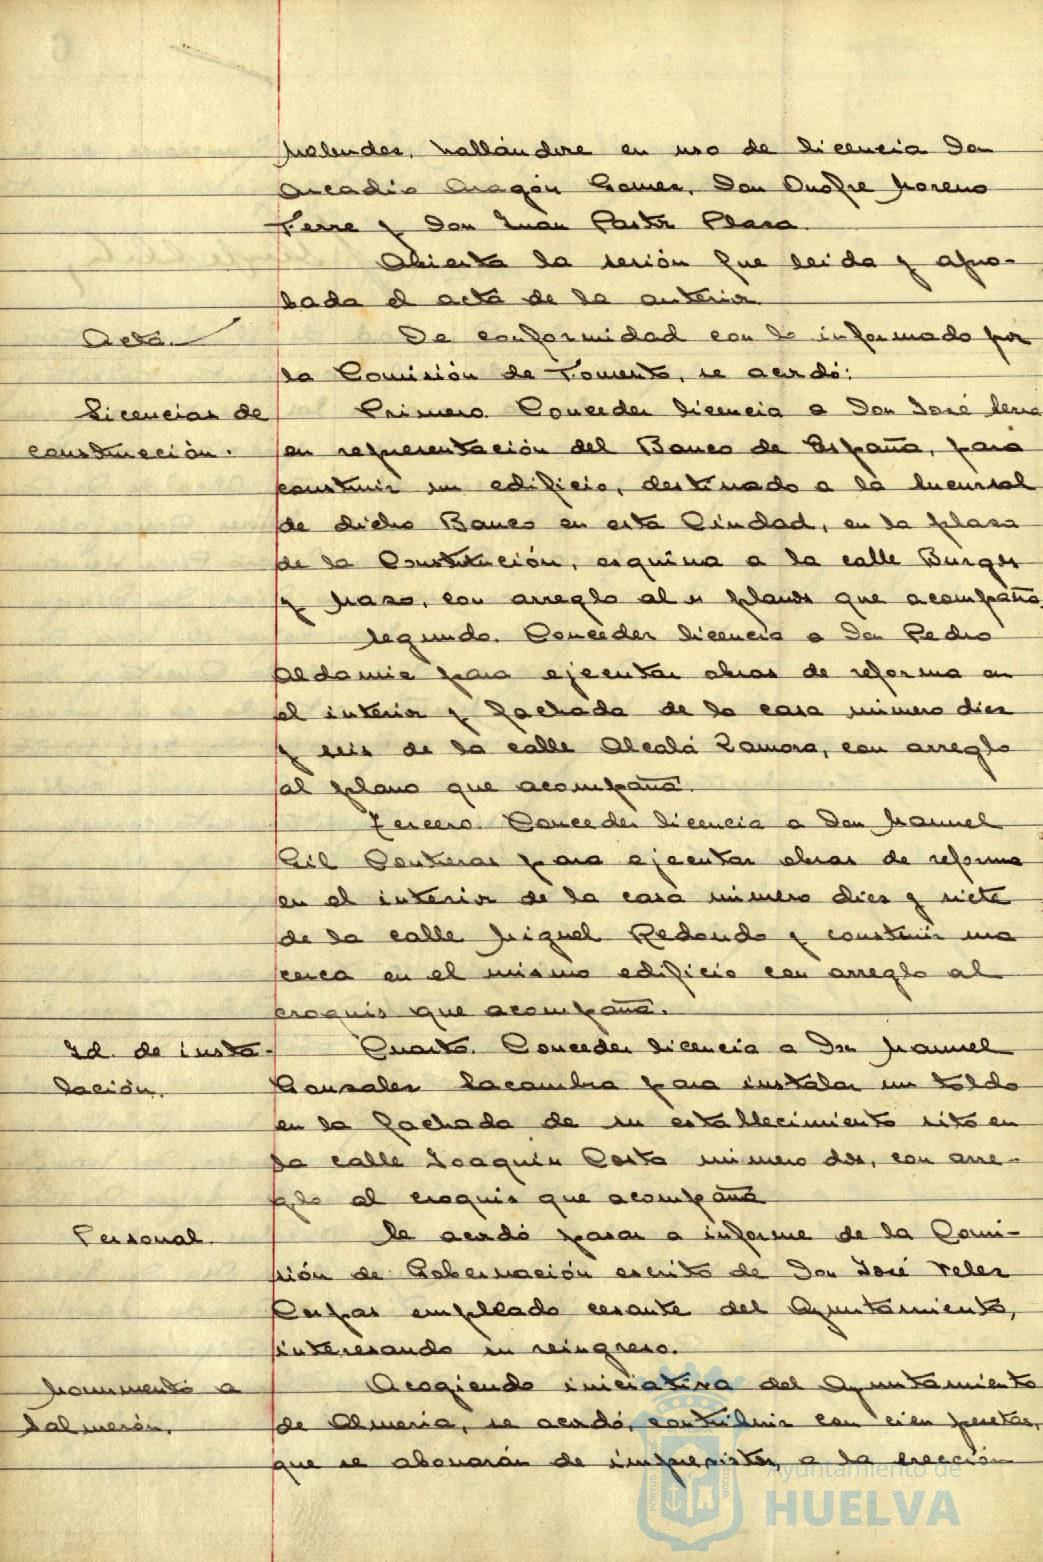 Melendez, hallándose en uso de licencia Don
Arcadio Aragón Gomez, Don Onofre Moreno
Terre y Don Juan Pastor Plaza.
Abierta la sesión fue leida y apro-
bada el acta de la anterior.
Acta.
De conformidad con lo informado por
la Comisión de Fomento, se acordó:
Licencias de
construcción.
Primero. Conceder licencia a Don José
en representación del Banco de España, para
construir un edificio, destinado a la Sucursal
de dicho Banco en esta Ciudad, en la plaza
de la Constitución, esquina a la calle Burgos
y Mazo, con arreglo al plano que acompaña.
Segundo. Conceder licencia a Don Pedro
Aldamiz para ejecutar obras de reforma en
el interior y fachada de la casa número diez
y seis de la calle Alcalá Zamora, con arreglo
al plano que acompaña.
Tercero. Conceder licencia a Don Manuel
Gil Contreras para ejecutar obras de reforma
en el interior de la casa número diez y siete
de la calle Miguel Redondo y construir una
cerca en el mismo edificio con arreglo al
croquis que acompaña.
Id. de insta-
lación.
Cuarto. Conceder licencia a Don Manuel
Gonzalez Lacambra para instalar un toldo
en la fachada de su establecimiento sito en
la calle Joaquín Costa número dos, con arre-
glo al croquis que acompaña
Personal.
Se acordó pasar a informe de la Comi-
sión de Gobernación escrito de Don José Velez
Cospas empleado cesante del Ayuntamiento,
interesando su reingreso.
Monumento a
Salmerón.
Acogiendo iniciativa del Ayuntamiento
de Almeria, se acordó, contribuir con cien pesetas,
que se abonarán de imprevistos, a la erección
Ayuntamiento de
HUELVA